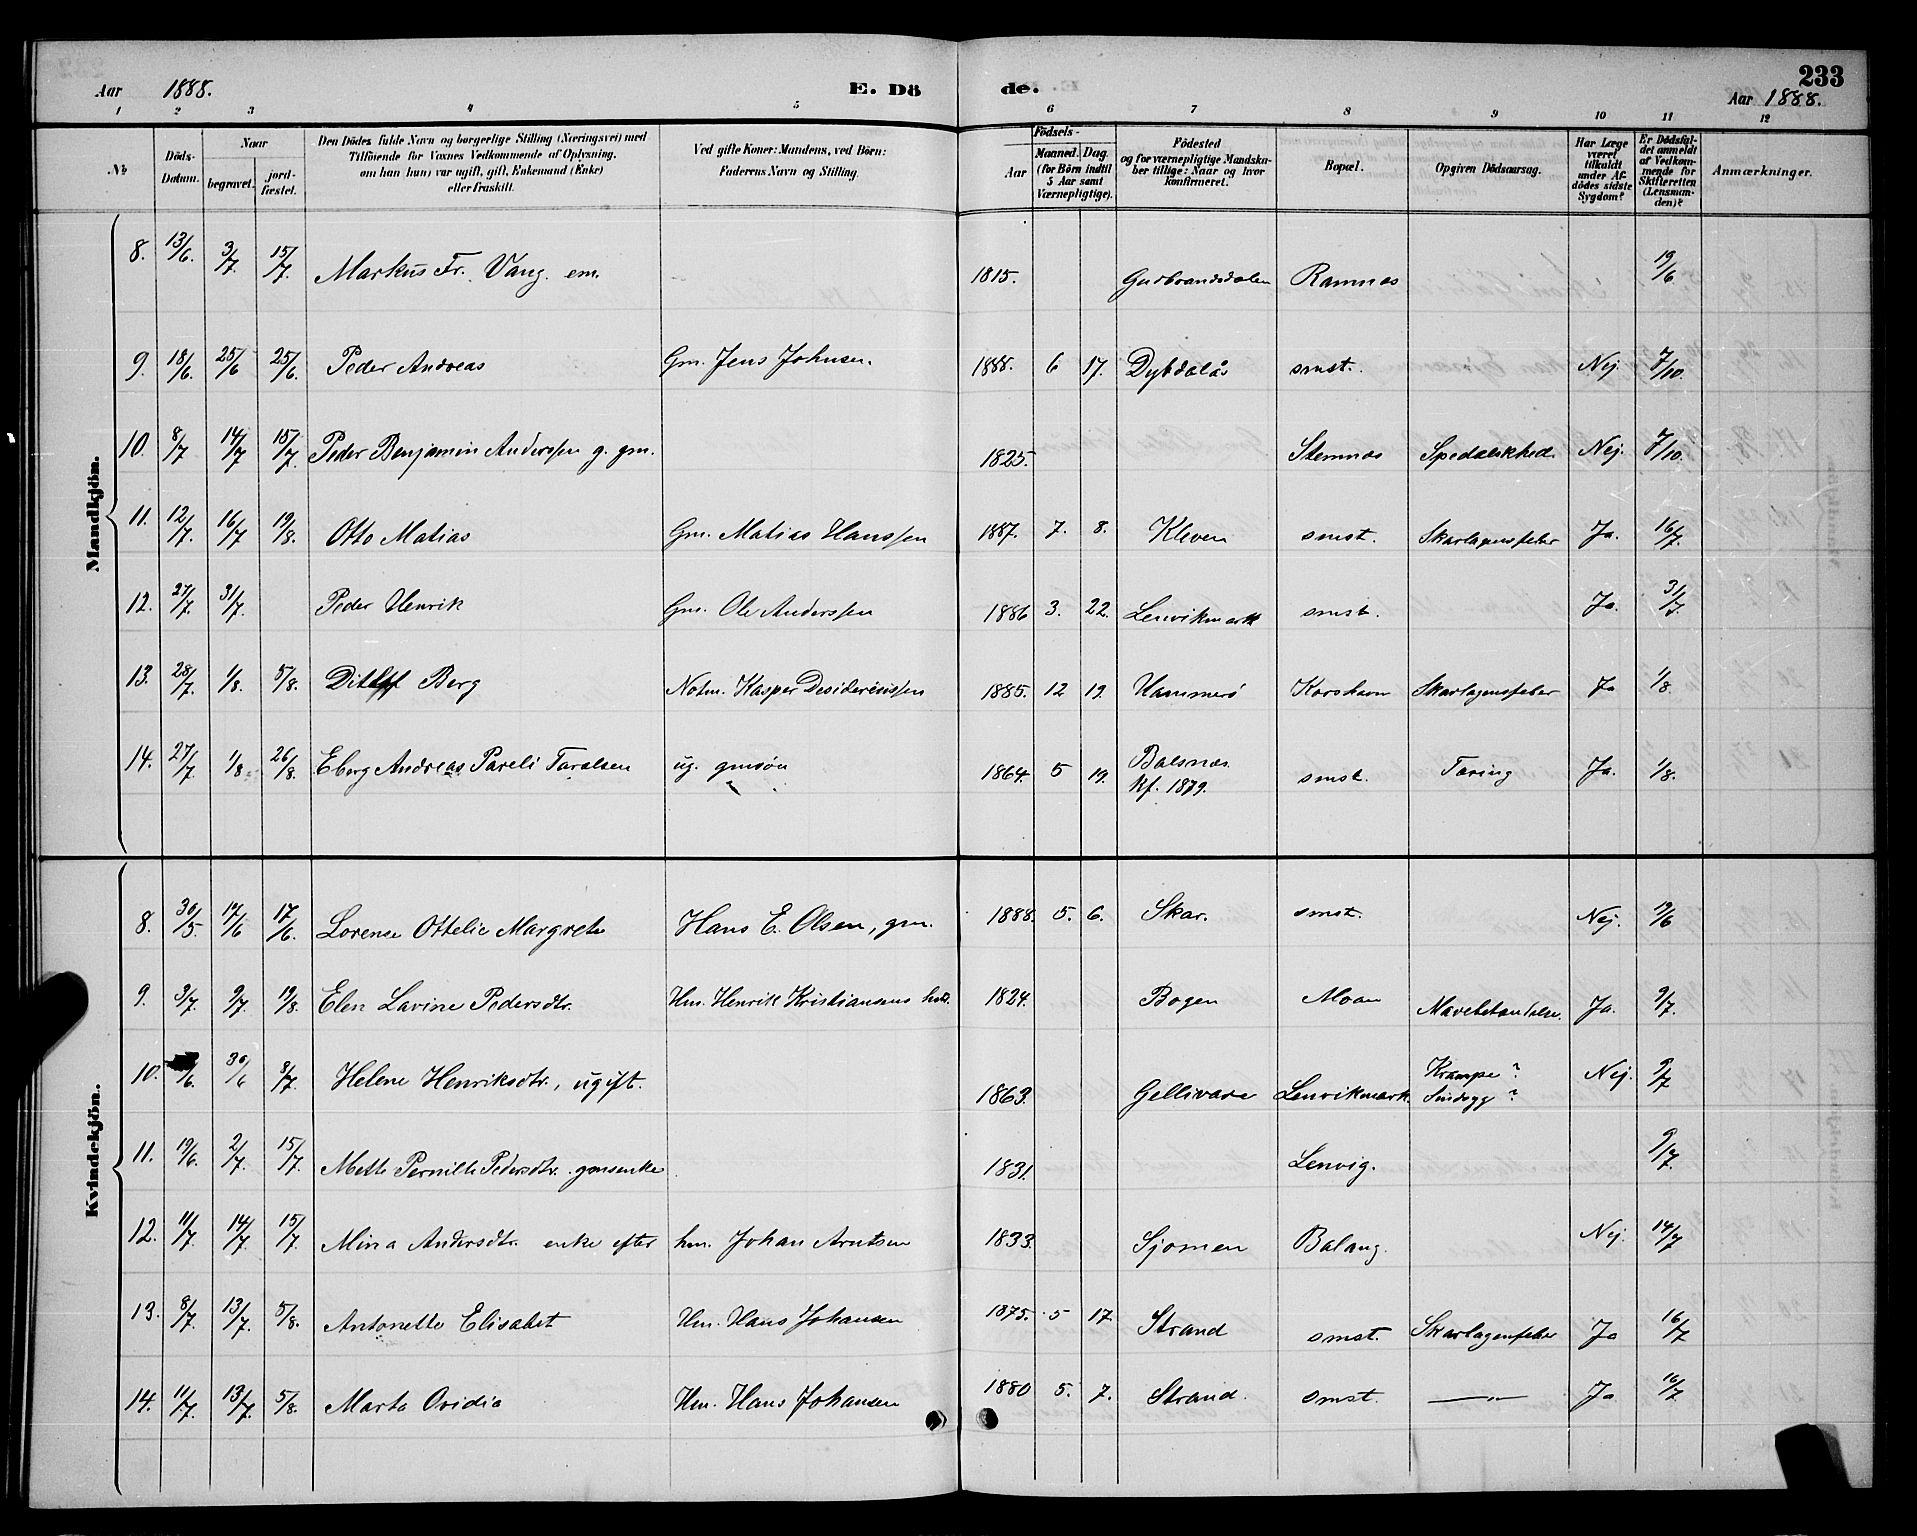 233
Aar 1888. E. Dö de. Aar 1888.
1 2 3 4 5 6 7 8 9 10 11 12
№
Döds-Datum.
Naar
begravet.
jord-fæstet.
Den Dödes fulde Navn og borgerlige Stilling (Næringsvei) med
Tilföiende for Voxnes Vedkommende af Oplysning,
om han (hun) var ugift, gift, Enkemand (Enke)
eller fraskilt.
Ved gifte Koner: Mandens, ved Börn:
Faderens Navn og Stilling.
Födsels-
Aar
Maaned. Dag.
(for Börn indtil
5 Aar samt
Værnepligtige).
Födested
og for værnepligtige Mandska-
ber tillige: Naar og hvor
konfirmeret.
Bopæl.
Opgiven Dödsaarsag.
Har Læge
været
tilkaldt
under Af-
dödes sidste
Sygdom?
Er Dödsfal-
det anmeldt
af Vedkom-
mende for
Skifteretten
(Lensman-
den)?
Anmærkninger.
Mandkjön.
8. 13/6. 3/7. 15/7. Markus Fr. Vang. em. 1815. Gudbrandsdalen Ramnes 19/6
9. 18/6. 25/6 25/6. Peder Andreas Gm. Jens Johnsen. 1888. 6 17. Dybdalås smst. Nej. 7/10.
10. 8/7 14/7 15/7. Peder Benjamin Anderssen g. gm. 1825. Stemnes Spedalskhed. Nej. 7/10.
11. 12/7. 16/7 19/8. Otto Matias Gm. Matias Hanssen 1887. 7. 8. Kleven smst. Skarlagensfeber Ja. 16/7.
12. 27/7. 31/7. Peder Henrik Gm. Ole Anderssen 1886 3. 22. Lenvikmark smst. Ja. 31/7.
13. 28/7. 1/8. 5/8. Ditlef Berg Notm. Kasper Desideriussen 1885. 12 19. Hammerö Korshavn Skarlagensfeber Ja 1/8.
14. 27/7. 1/8 26/8. Eberg Andreas Pareli Taralsen ug. gmsøn 1864. 5 19. Balsnes. smst. Tæring Ja. 1/8.
Kf. 1879.
Kvindekjön.
8. 30/5. 17/6 17/6. Lorense Ottelie Margrete Hans E. Olsen, gm. 1888. 5. 6. Skar. smst. Nej. 19/6
9. 3/7. 9/7. 19/8. Elen Lavine Pedersdtr. Hm. Henrik Kristiansens hstr. 1824. Bogen Moan Mavebetændelse. Ja. 9/7.
10. /6. 30/6 8/7. Helene Henriksdtr., ugift. 1863. Gellivare Lenvikmark. Krampe? Nej. 9/7
Sindsyg?
11. 19/6. 2/7. 15/7. Mette Pernille Pedersdtr. gmsenke. 1831. Lenvig. 9/7.
12. 11/7. 14/7. 15/7. Mina Andersdtr. enke efter hm. Johan Arntsen 1833. Sjomen Balang. Nej. 14/7
13. 8/7. 13/7. 5/8. Antonette Elisabet Hm. Hans Johansen 1875. 5 17. Strand smst. Skarlagenfeber Ja 16/7
14. 11/7. 13/7. 5/8. Marta Ovidia Hm. Hans Johansen 1880 5. 7. Strand. smst. —"— Ja 16/7